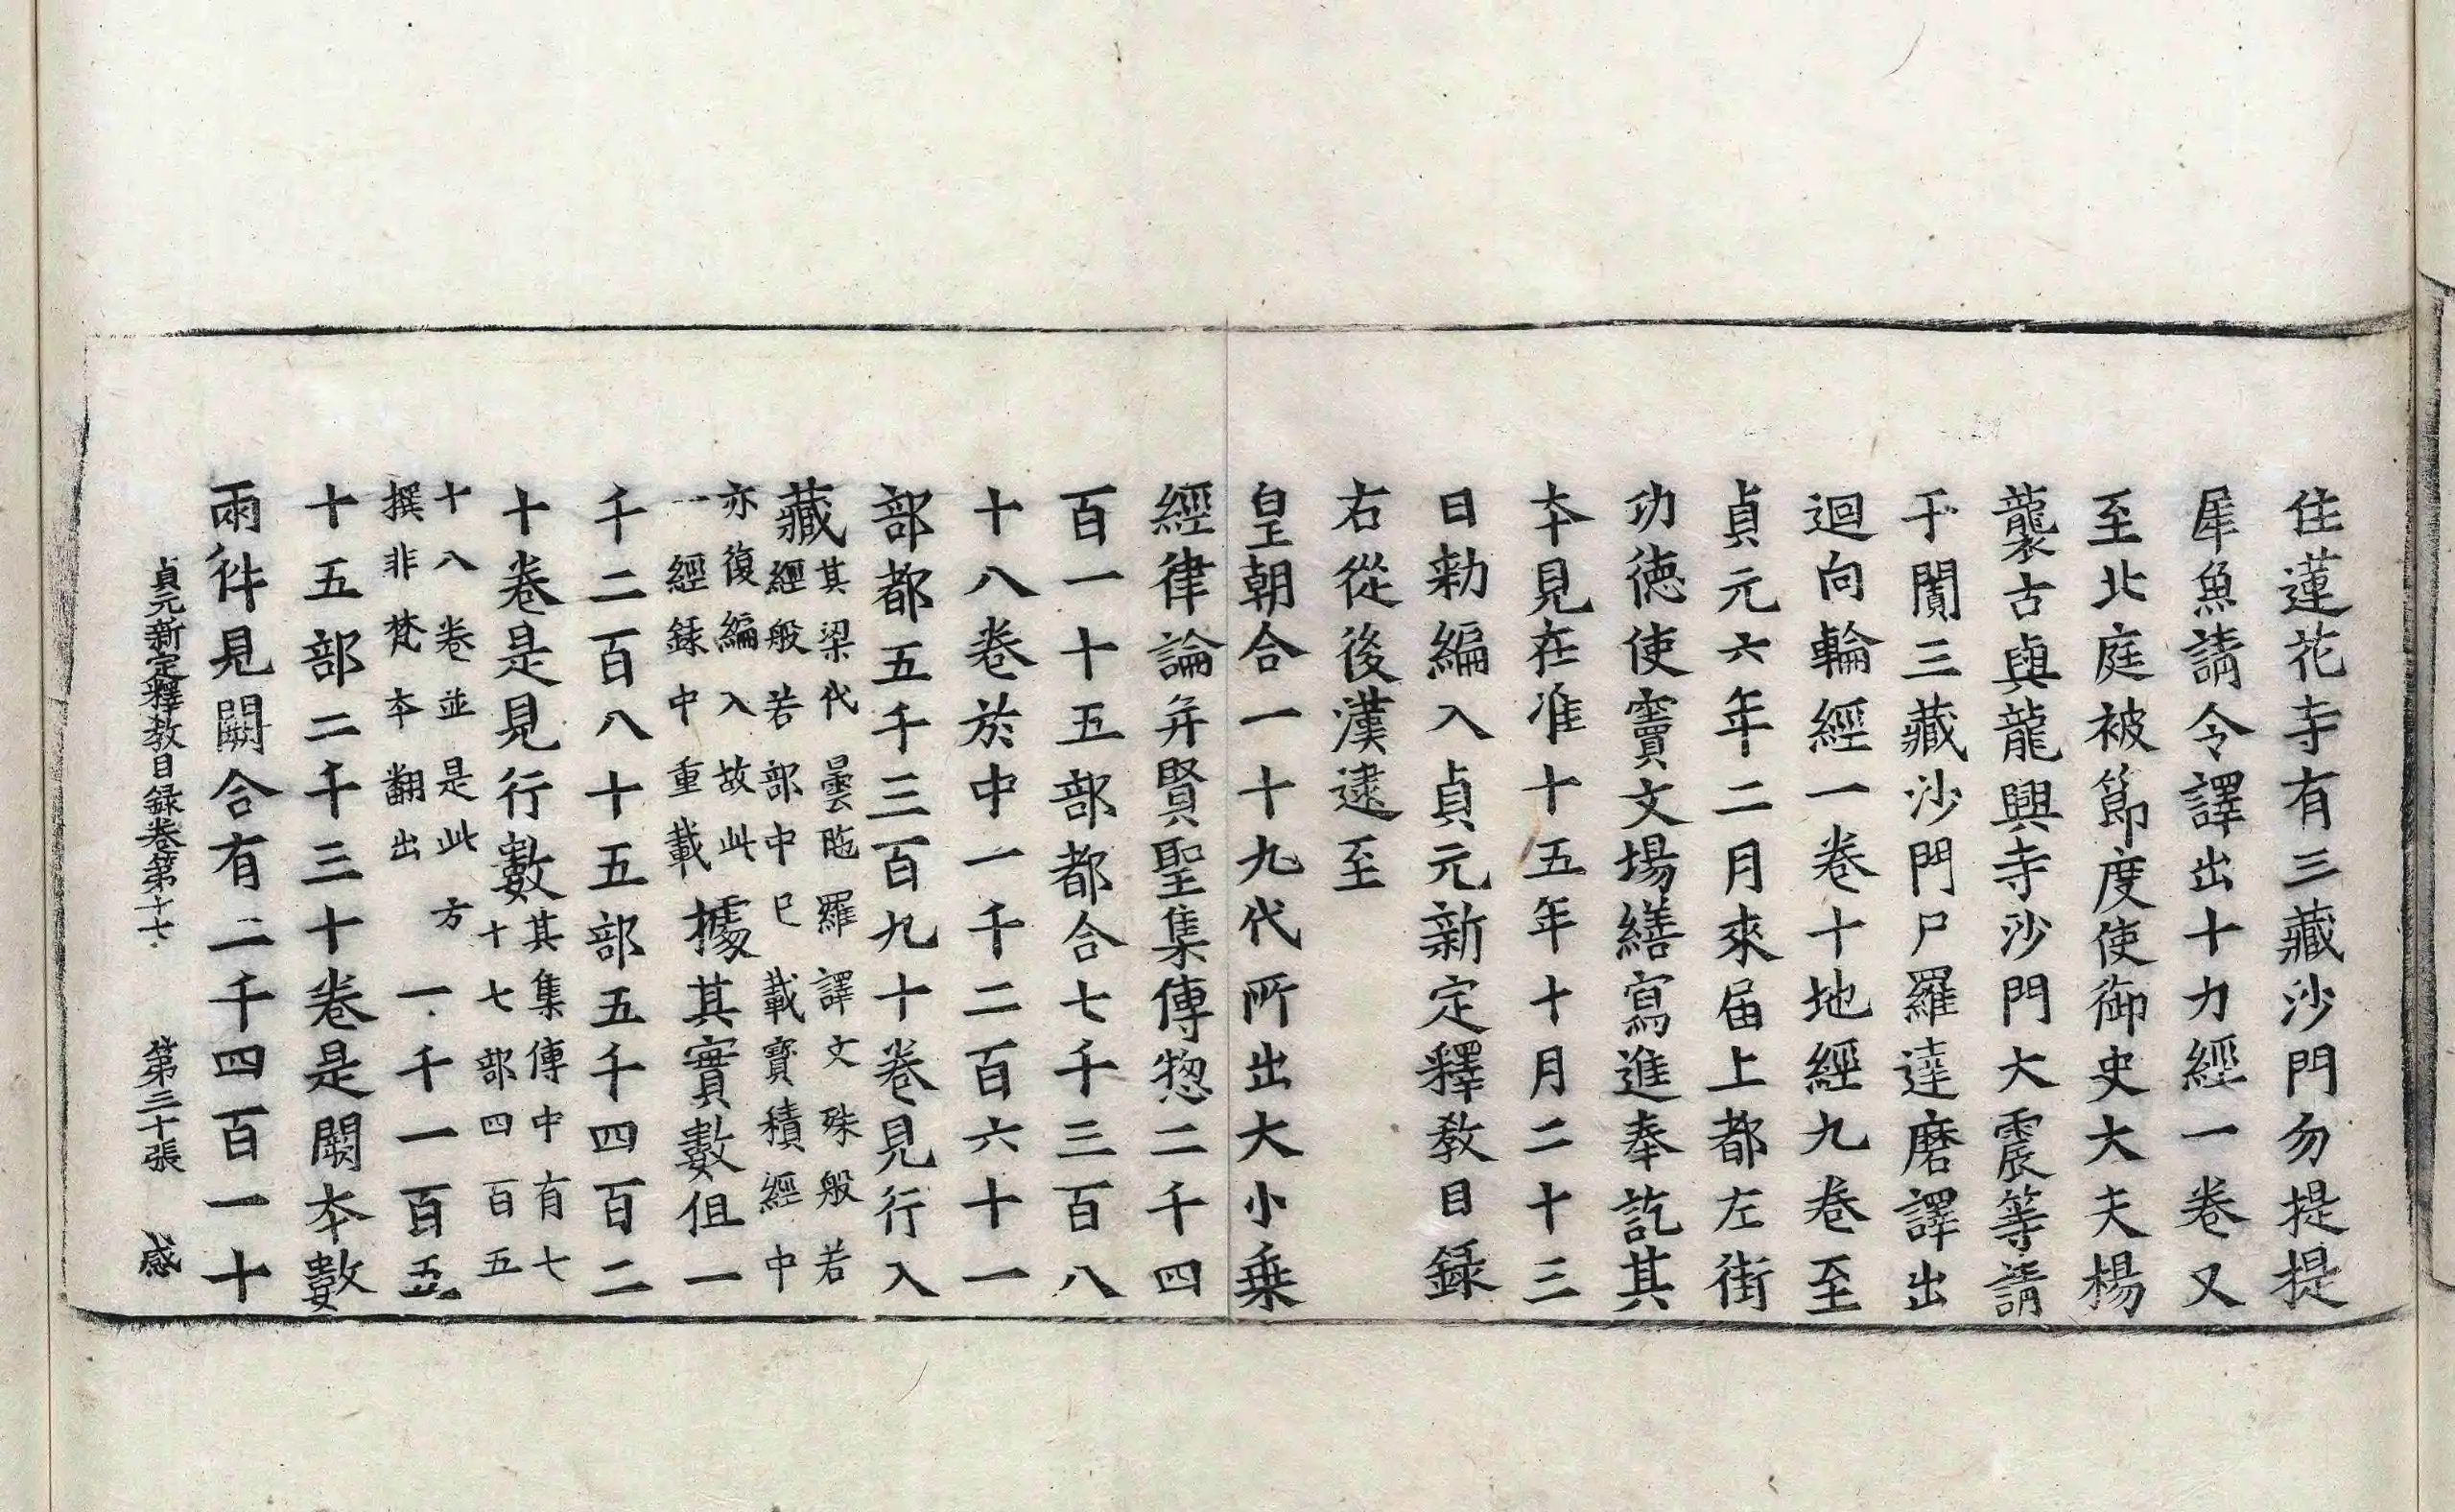 住蓮花寺有三藏沙門勿提提
犀魚請令譯出十力經一卷又
至北庭被節度使御史大夫楊
襲古與龍興寺沙門大震等請
于闐三藏沙門尸羅達磨譯出
迴向輪經一卷十地經九卷至
貞元六年二月來屆上都左街
功德使竇文場繕寫進奉訖其
本見在准十五年十月二十三
日勑編入貞元新定釋教目録
右從後漢逮至
皇朝合一十九代所出大小乗
經律論并賢聖集傳惣二千四
百一十五部都合七千三百八
十八卷於中一千二百六十一
部都五千三百九十卷見行入
藏其梁代曇陁羅譯文殊般若
經般若部中已載寳積經中
亦復編入故此
一經録中重載據其實數但一
千二百八十五部五千四百二
十卷是見行數其集傳中有七
十七部四百五
十八卷並是此方
撰非梵本翻出一千一百五
十五部二千三十卷是闕本數
兩件見闕合有二千四百一十
貞元新定釋教目録卷第十七 第三十張 感